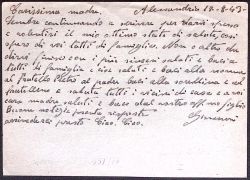 Carissima madre, Alessandria 13-8-43
Sempre continuando a scrivere per darvi spesso
e sentirvi il mio ottimo stato di salute, così
spero di voi tutti di famiglia. Non altro che
dirvi, invio con i più sinceri saluti e baci a
tutti di famiglia e i più saluti e baci alla nonna
al fratello Pietro al padre baci alla sorellina e al
fratellino e saluto tutti i vicini di casa e a voi
cara madre saluti e baci dal vostro aff.mo figlio
Buone notizie pronta risposta Giovanni
arrivederci presto Ciao, Ciao.